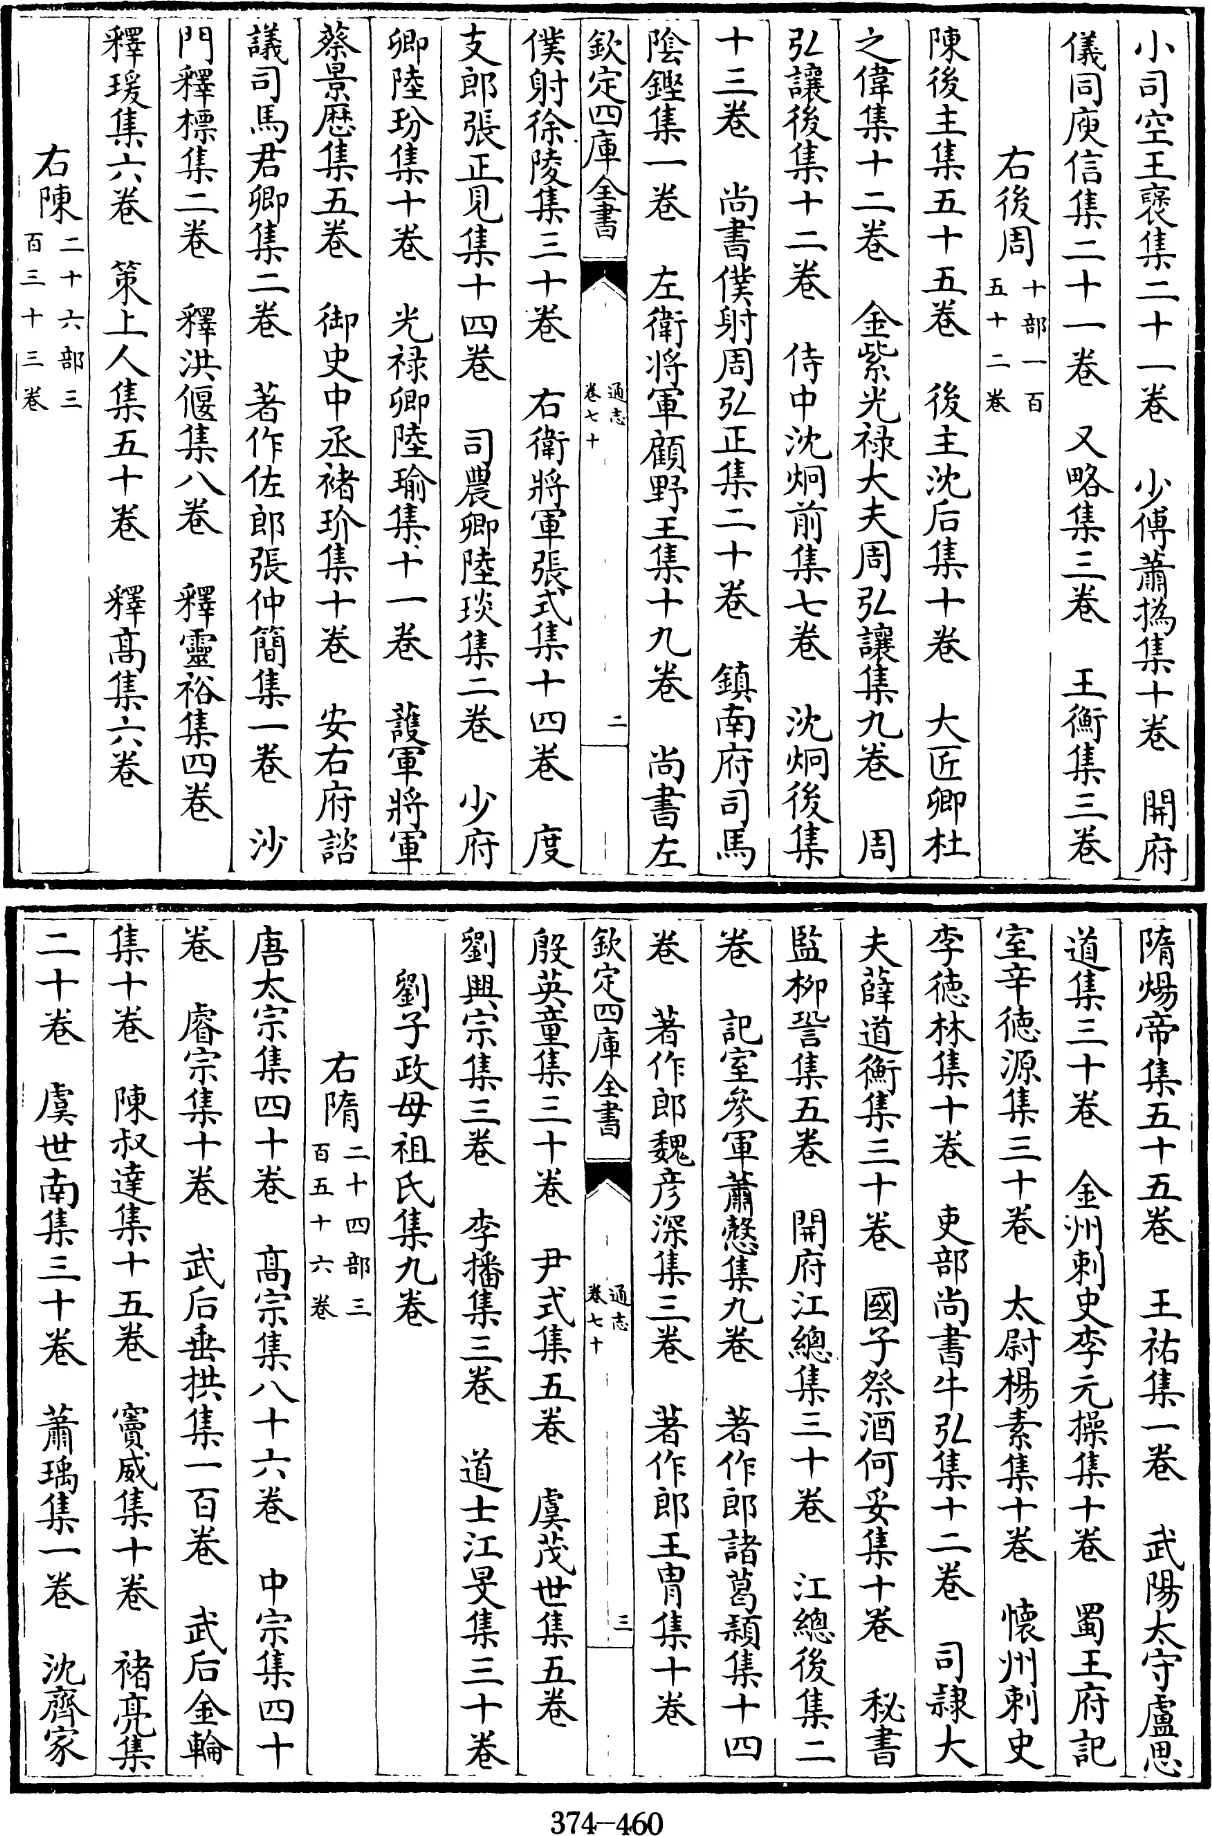 小司空王襃集二十一卷　少傅蕭撝集十卷　開府
儀同庾信集二十一卷　又略集三卷　王衡集三卷
右後周十部一百五十二卷
陳後主集五十五卷　後主沈后集十卷　大匠卿杜
之偉集十二卷　金紫光禄大夫周弘讓集九卷　周
弘讓後集十二卷　侍中沈炯前集七卷　沈炯後集
十三卷　尚書僕射周弘正集二十卷　鎮南府司馬
陰鏗集一卷　左衛將軍顧野王集十九卷　尚書左
欽定四庫全書　通志卷七十　二
僕射徐陵集三十卷　右衛將軍張式集十四卷　度
支郎張正見集十四卷　司農卿陸琰集二卷　少府
卿陸玢集十卷　光禄卿陸瑜集十一卷　護軍將軍
蔡景歷集五卷　御史中丞褚玠集十卷　安右府諮
議司馬君卿集二卷　著作佐郎張仲簡集一卷　沙
門釋標集二卷　釋洪偃集八卷　釋靈裕集四卷
釋瑗集六卷　策上人集五十卷　釋髙集六卷
右陳二十六部三百三十三卷
隋煬帝集五十五卷　王祐集一卷　武陽太守盧思
道集三十卷　金州刺史李元操集十卷　蜀王府記
室辛德源集三十卷　太尉楊素集十卷　懷州刺史
李德林集十卷　吏部尚書牛弘集十二卷　司隸大
夫薛道衡集三十卷　國子祭酒何妥集十卷　秘書
監柳䛒集五卷　開府江總集三十卷　江總後集二
卷　記室參軍蕭慤集九卷　著作郎諸葛頴集十四
卷　著作郎魏彦深集三卷　著作郎王胄集十卷
欽定四庫全書　通志卷七十　三
殷英童集三十卷　尹式集五卷　虞茂世集五卷
劉興宗集三卷　李播集三卷　道士江旻集三十卷
劉子政母祖氏集九卷
右隋二十四部三百五十六卷
唐太宗集四十卷　髙宗集八十六卷　中宗集四十
卷　睿宗集十卷　武后垂拱集一百卷　武后金輪
集十卷　陳叔達集十五卷　竇威集十卷　褚亮集
二十卷　虞世南集三十卷　蕭瑀集一卷　沈齊家
374-460